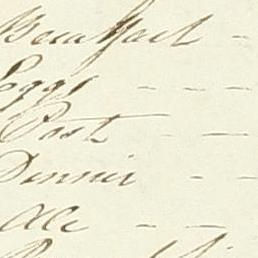 Breakfast -
Eggs - - -
Post - -
Dinner - -
Ale - -